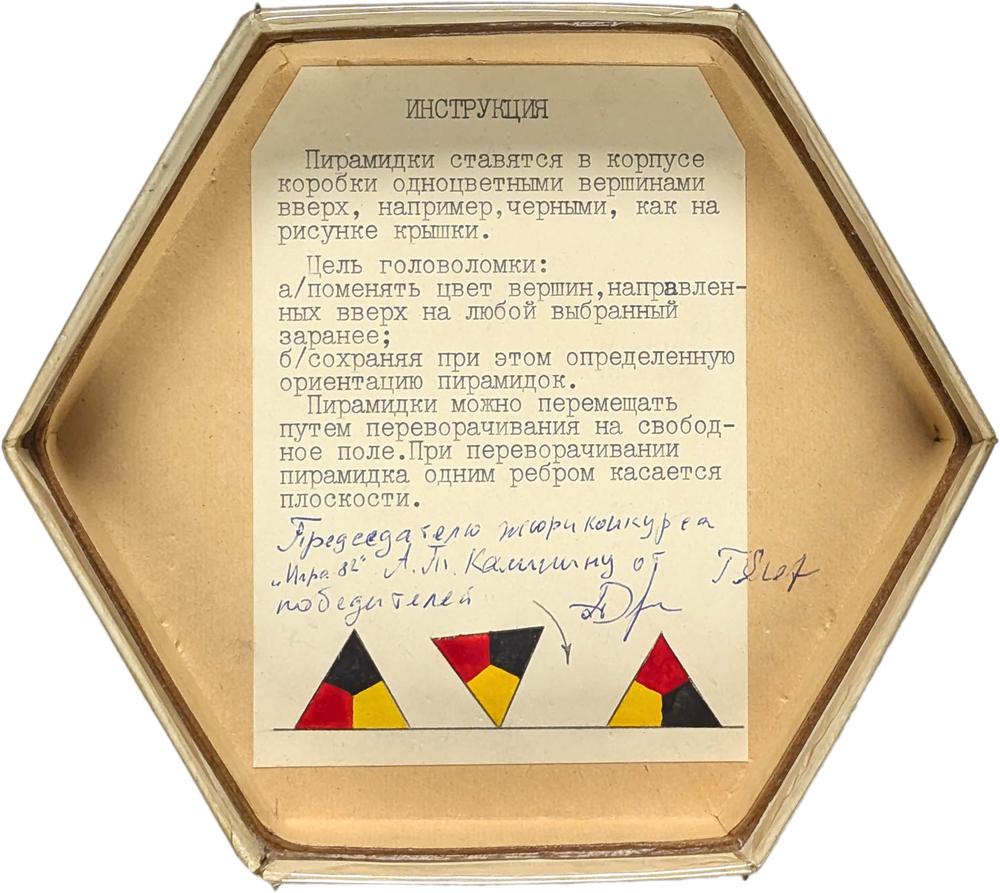 ИНСТРУКЦИЯ
Пирамидки ставятся в корпусе
коробки одноцветными вершинами
вверх, например,черными, как на
рисунке крышки.
Цель головоломки:
а/поменять цвет вершин,направлен-
ных вверх на любой выбранный
заранее;
б/сохраняя при этом определенную
ориентацию пирамидок.
Пирамидки можно перемещать
путем переворачивания на свобод-
ное поле.При переворачивании
пирамидка одним ребром касается
плоскости.
Председателю жюри конкурса
„Игра-82" А.Т. Калинину от
победителей